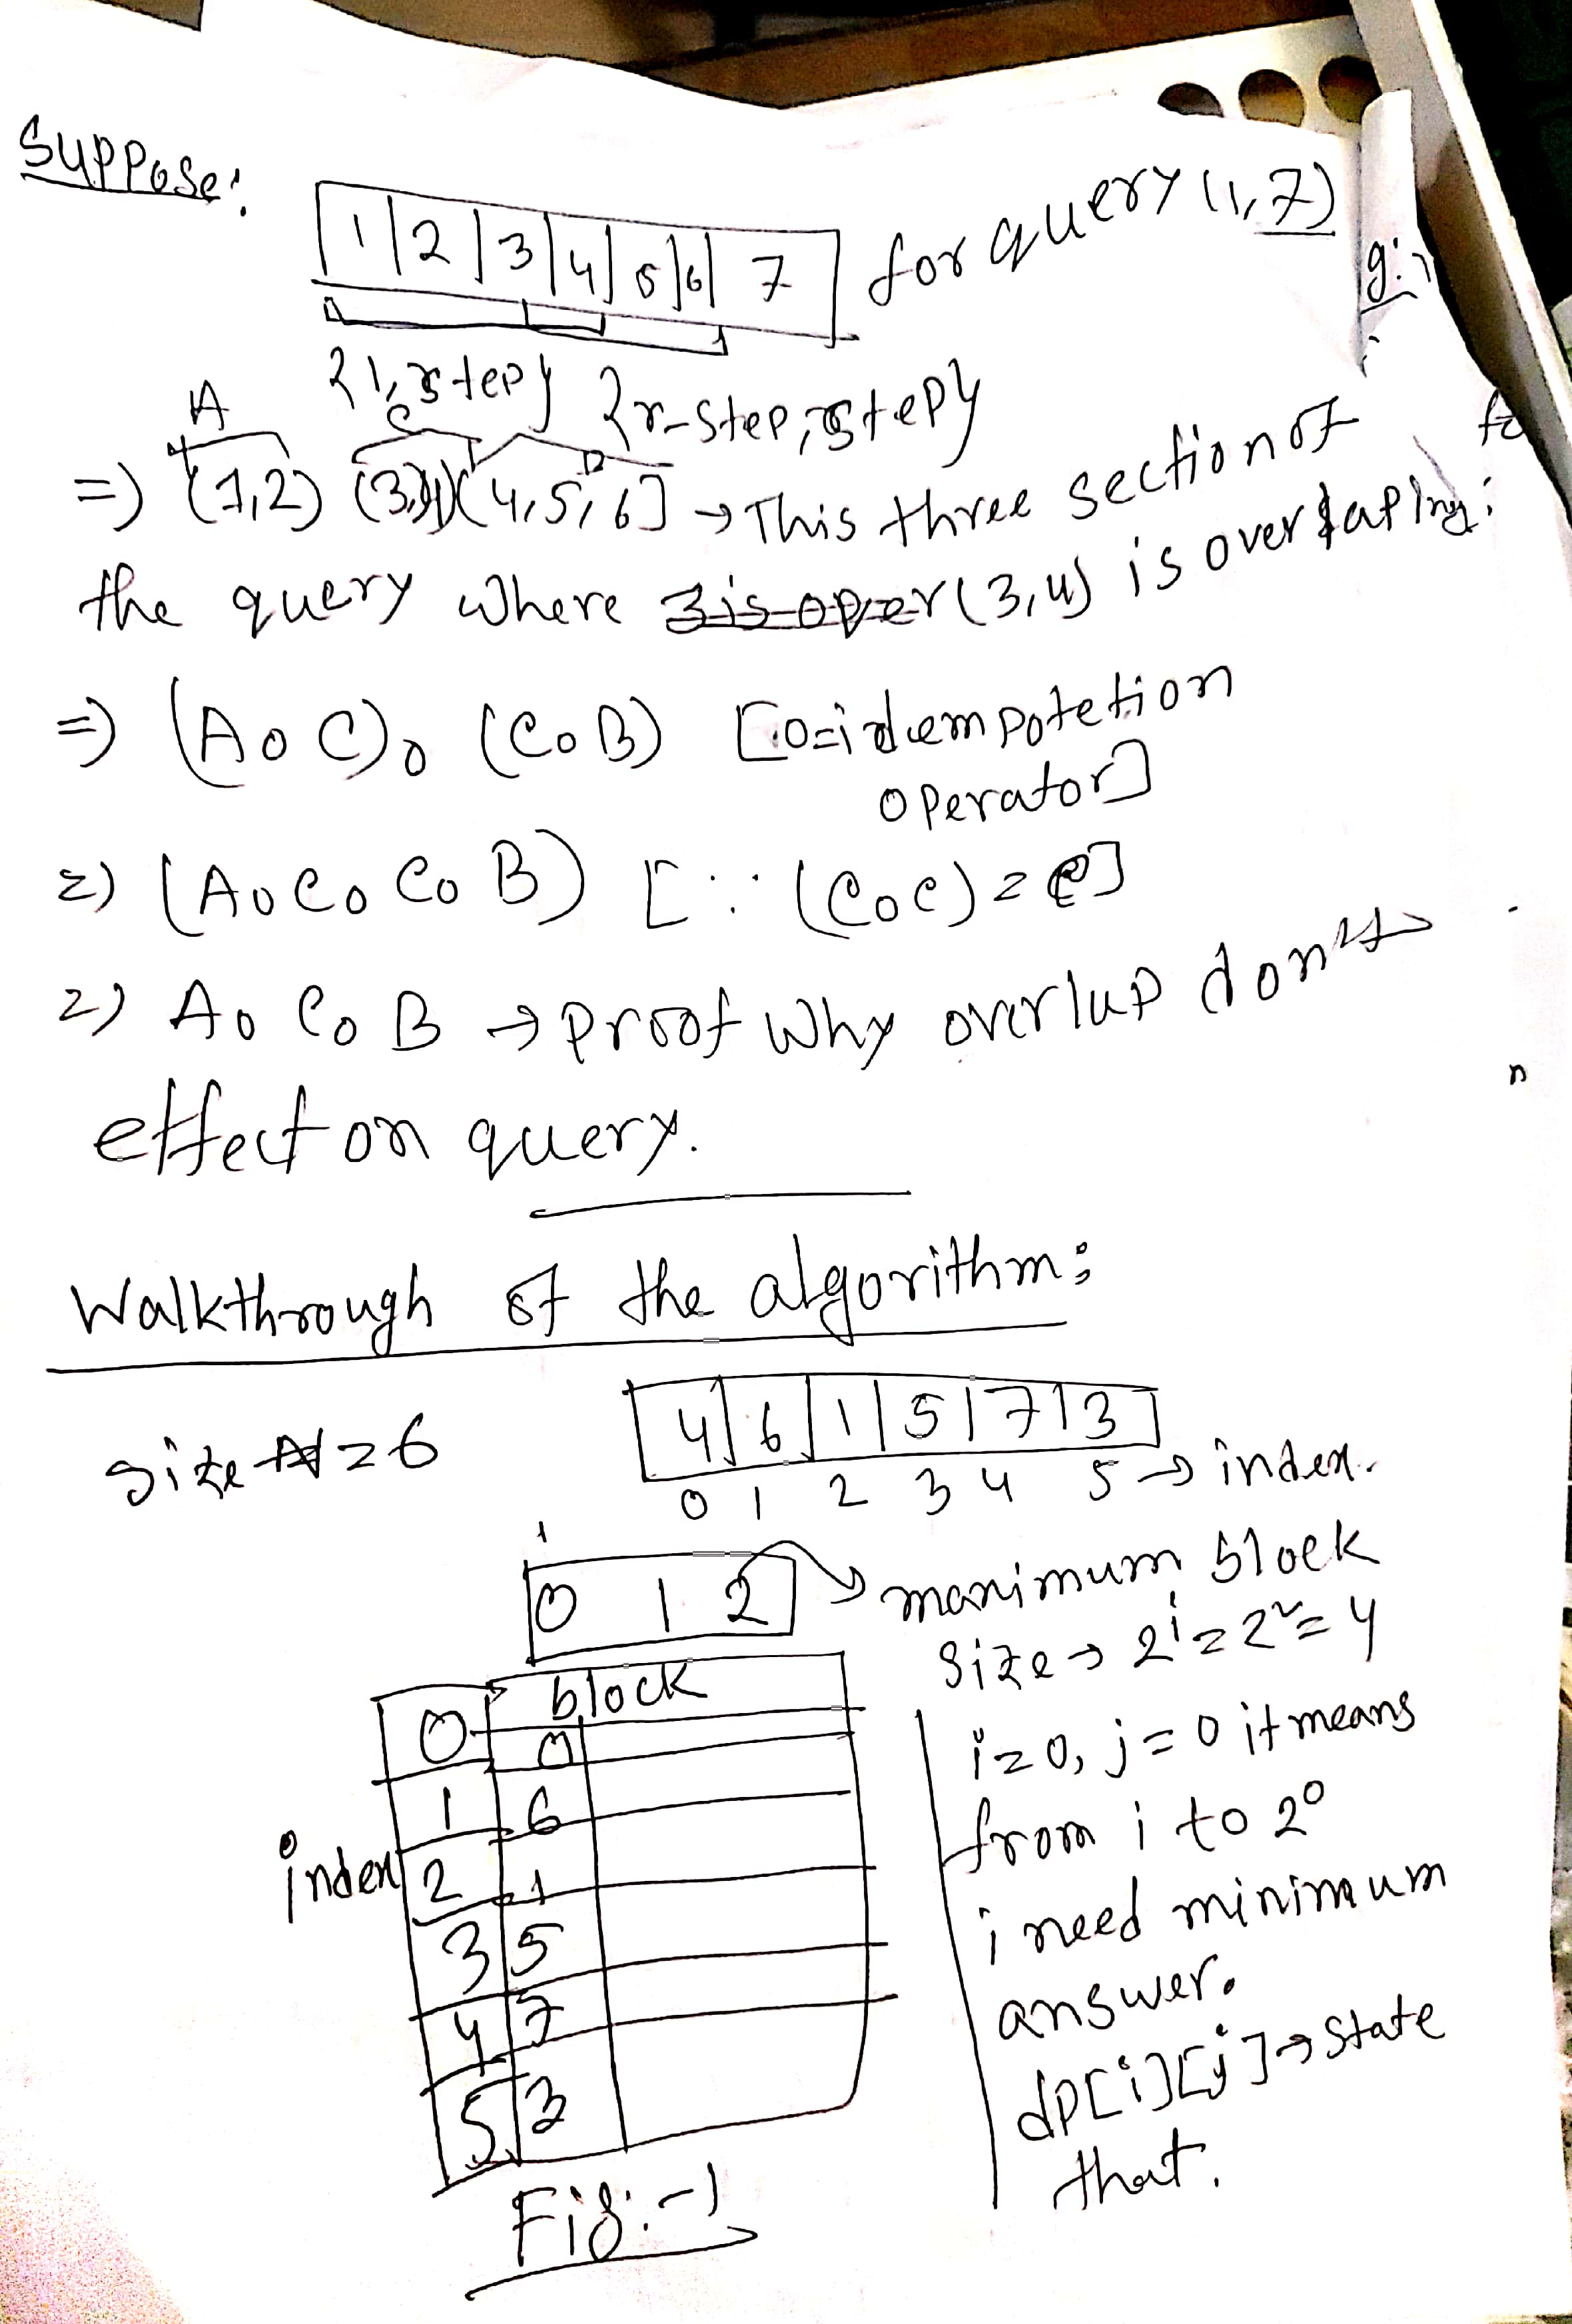 Suppose:
1 2 3 4 5 6 7 for query (1,7)
{1, step} {r-step, step}
A C B
=) (1,2) (3,4) (4,5,6] → This three section of
the query where 3 is over (3,4) is overlaping:
=) (A o C) o (C o B) [o=idempotetion
operator]
=) (A o C o C o B) [∵ (C o C) = C]
=) A o C o B → Proof why overlap don't
effect on query.
Walkthrough of the algorithm:
size N = 6 4 6 1 5 7 3
0 1 2 3 4 5 → index.
0 1 2 → maximum block
size → 2^i = 2^2 = 4
block
0 0
1 6
index 2 1
3 5
4 7
5 3
Fig:-1
i=0, j=0 it means
from i to 2^0
i need minimum
answer.
dp[i][j] → state
that.
g:
fo
n